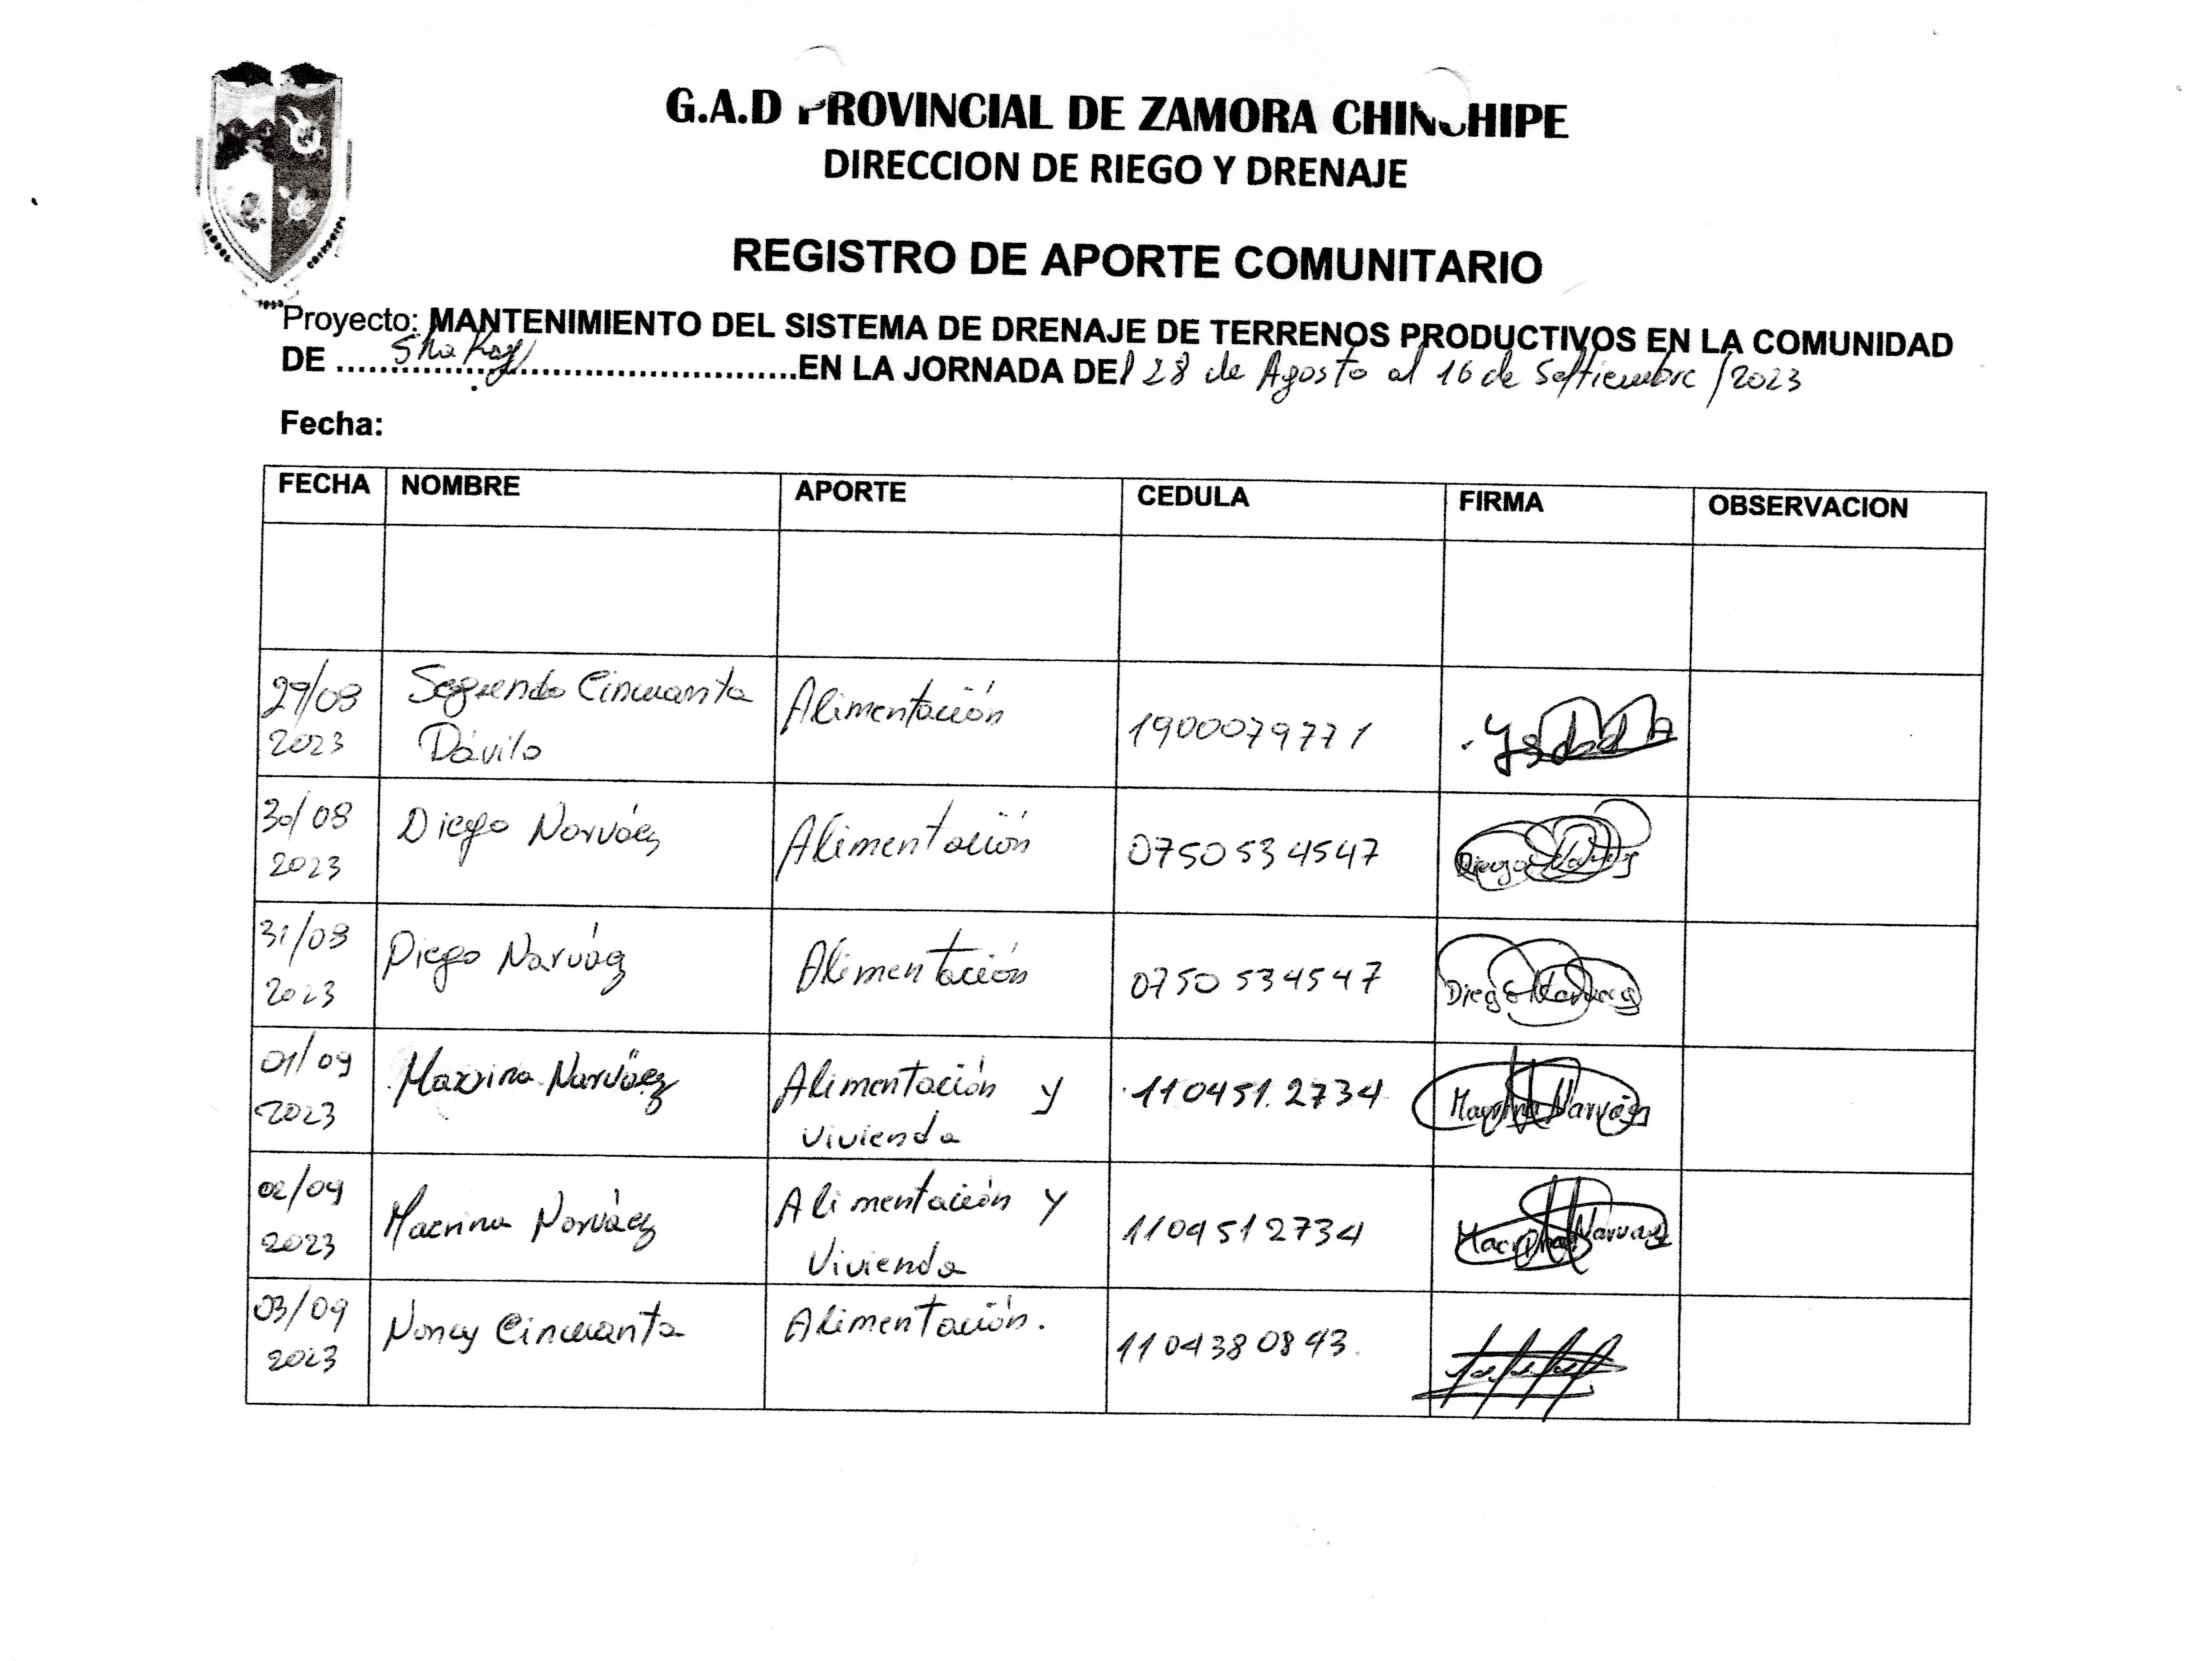 G.A.D PROVINCIAL DE ZAMORA CHINCHIPE
DIRECCION DE RIEGO Y DRENAJE
REGISTRO DE APORTE COMUNITARIO
Proyecto: MANTENIMIENTO DEL SISTEMA DE DRENAJE DE TERRENOS PRODUCTIVOS EN LA COMUNIDAD
DE ..........................................EN LA JORNADA DEl 28 de Agosto al 16 de Septiembre /2023
Fecha:
FECHA NOMBRE APORTE CEDULA FIRMA OBSERVACION
29/08 2023 Segundo Cincuanta Dávila Alimentación 1900079771
30/08 2023 Diego Narváez Alimentación 0750534547 Diego Narváez
31/08 2023 Diego Narváez Alimentación 0750534547 Diego Narvaez
01/09 2023 Macrina Narváez Alimentación y Vivienda 110451.2734 Macrina Narváez
02/09 2023 Macrina Narváez Alimentación y Vivienda 1104512734 Macrina Narvaez
03/09 2023 Nancy Cincuanta Alimentación. 1104380843.